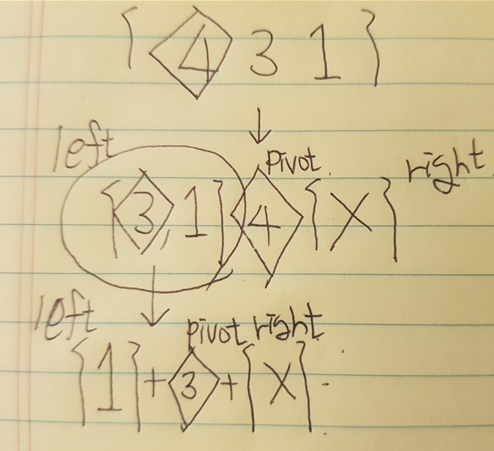 { 4 3 1 }
left pivot right
{3,1} 4 {X}
left pivot right
{1} + 3 + {X}